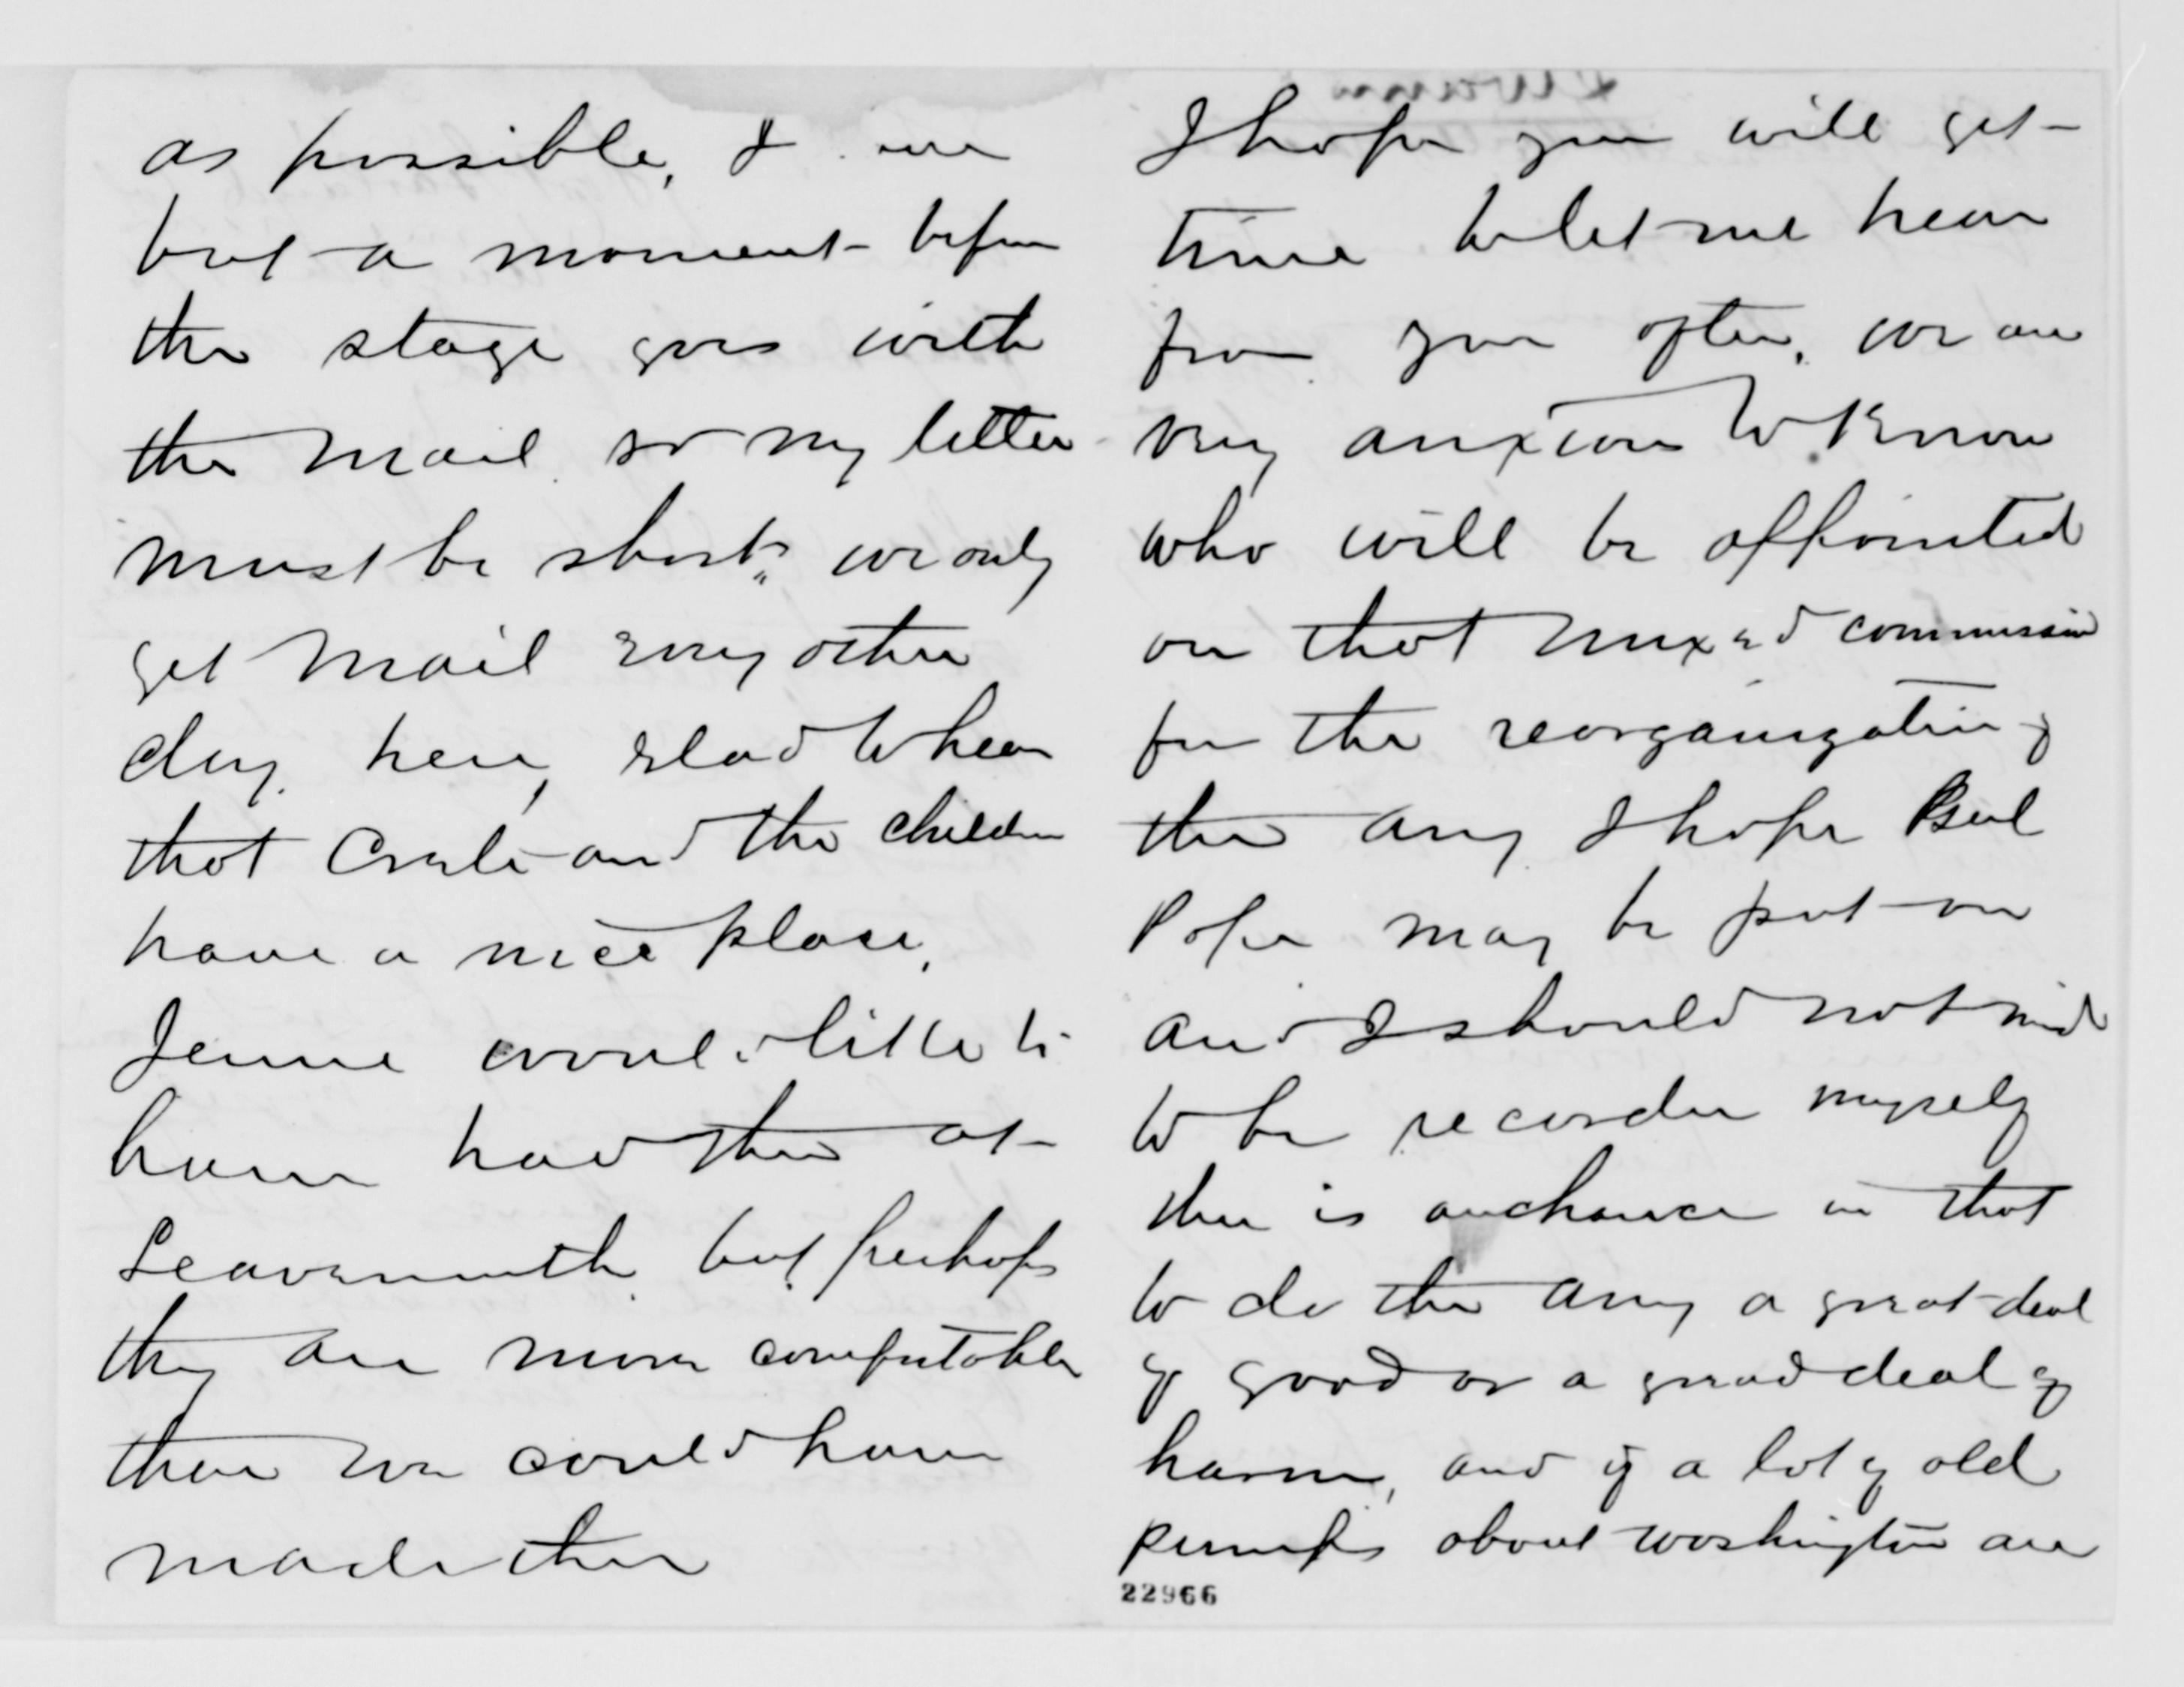 as possible, I
but a moment before
the stage goes with
the mail so my letter
must be short, we only
get mail every other
day here, glad to hear
that Crete and the children
have a nice place,
Jennie would like to
have had them at
Leavenworth but perhaps
they are more comfortable
than we could have
made them
I hope you will get
time to let me hear
from you often, we are
very anxious to know
who will be appointed
on that mixed commission
for the reorganization of
the army I hope Genl
Pope may be put on
and I should not mind
to be recorder myself
there is a chance in that
to do the army a great deal
of good or a great deal of
harm, and if a lot of old
pumps about Washington are
22966